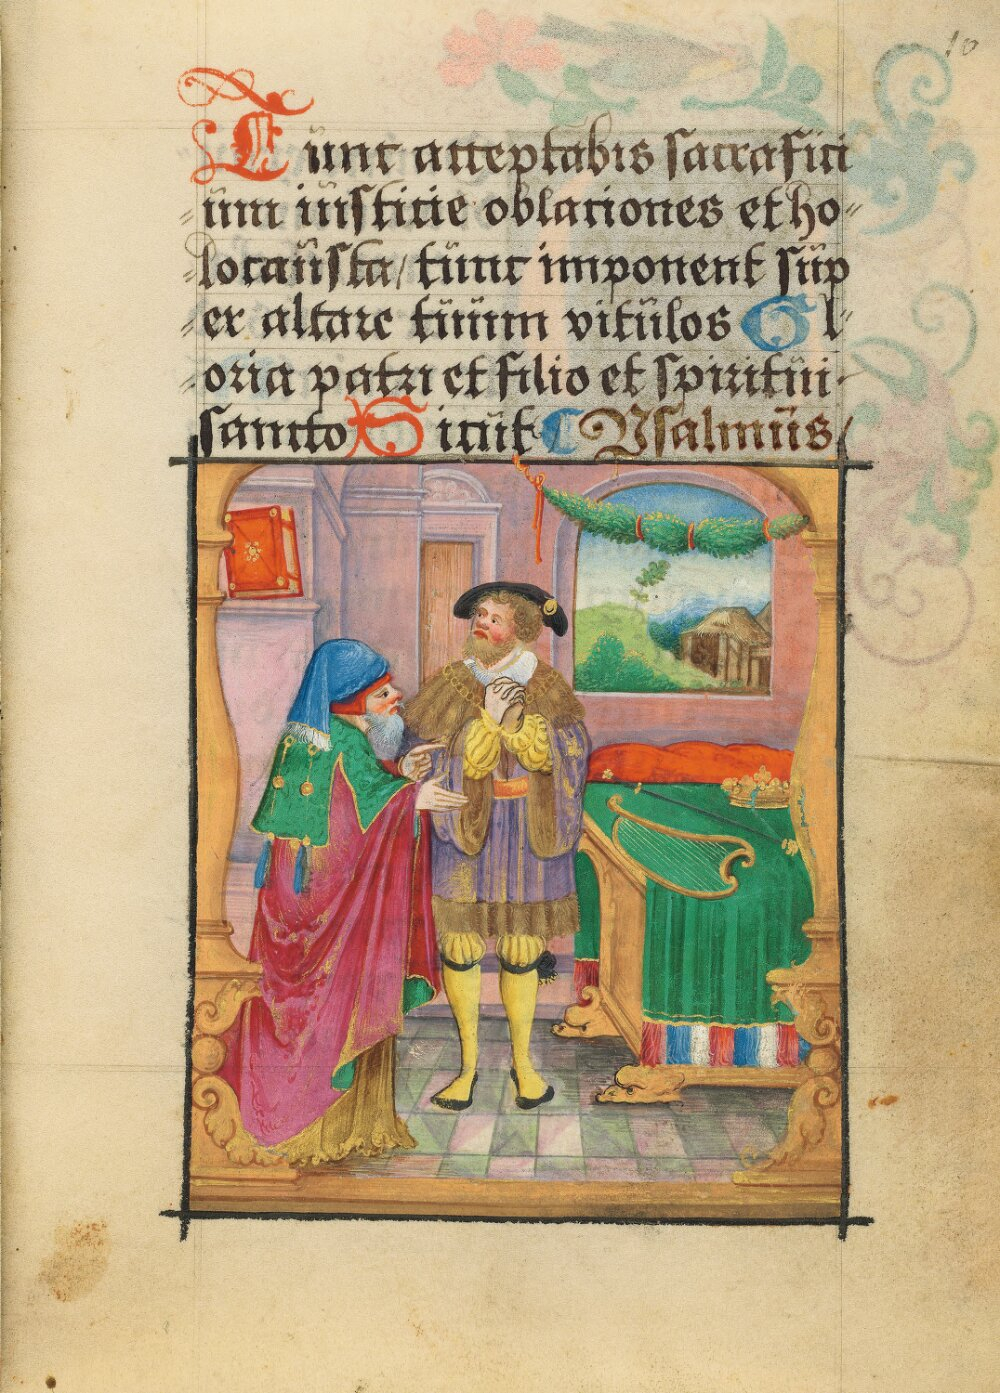 10
Tunc acceptabis sacrafici
um iusticie oblaciones et ho
locausta / tunc imponent sup
er altare tuum vitulos Gl
oria patri et filio et spiritui
sancto Sicut Psalmus /